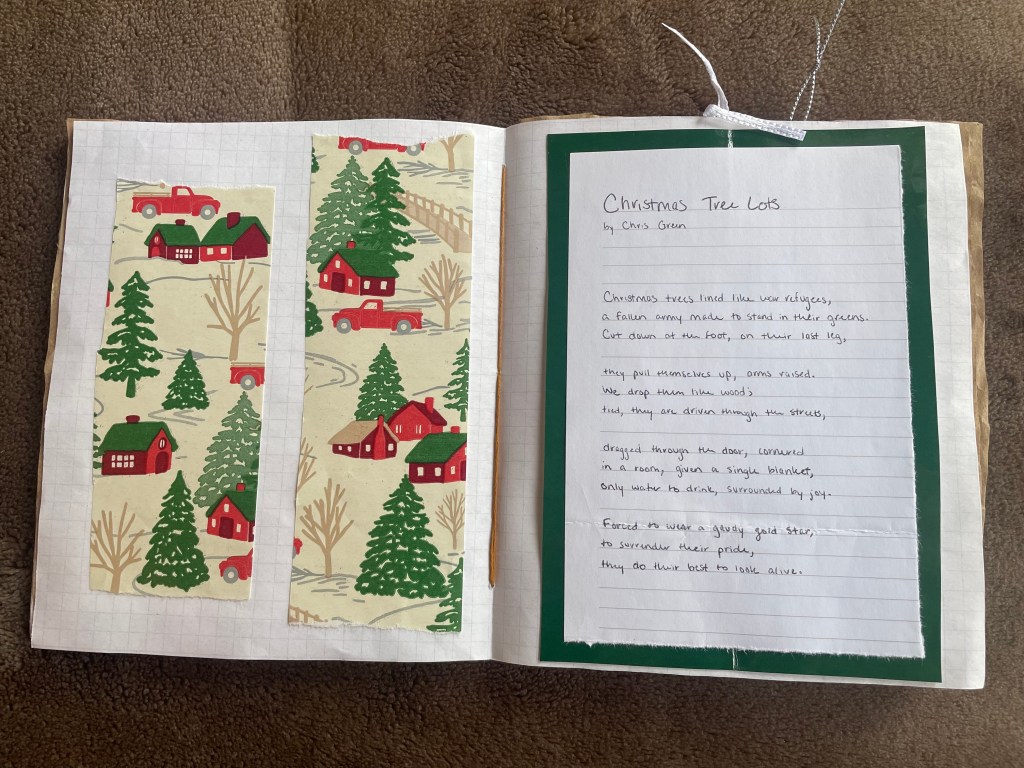 Christmas Tree Lots
by Chris Green
Christmas trees lined like war refugees,
a fallen army made to stand in their greens.
Cut down at the foot, on their last leg,
they pull themselves up, arms raised.
We drop them like wood;
tied, they are driven through the streets,
dragged through the door, cornered
in a room, given a single blanket,
only water to drink, surrounded by joy.
Forced to wear a gaudy gold star,
to surrender their pride,
they do their best to look alive.